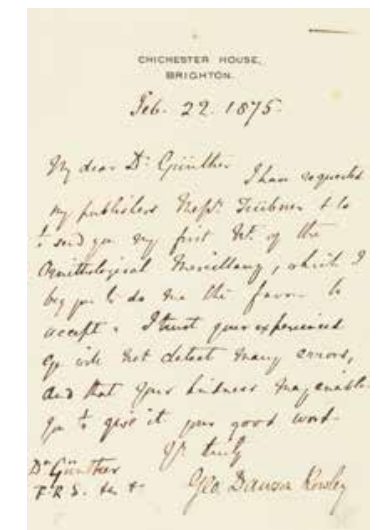 CHICHESTER HOUSE,
BRIGHTON.
Feb. 22. 1875.
My dear Dr. Günther
I have requested
my publishers Messrs. Trübner & Co
to send you my first Nt. of the
Ornithological Miscellany, which I
beg you to do me the favor to
accept. I trust your experienced
eye will not detect many errors,
and that your kindness may enable
you to give it your good word.
Yrs truly
Geo. Dawson Rowley
Dr Günther
F.R.S. &c &c